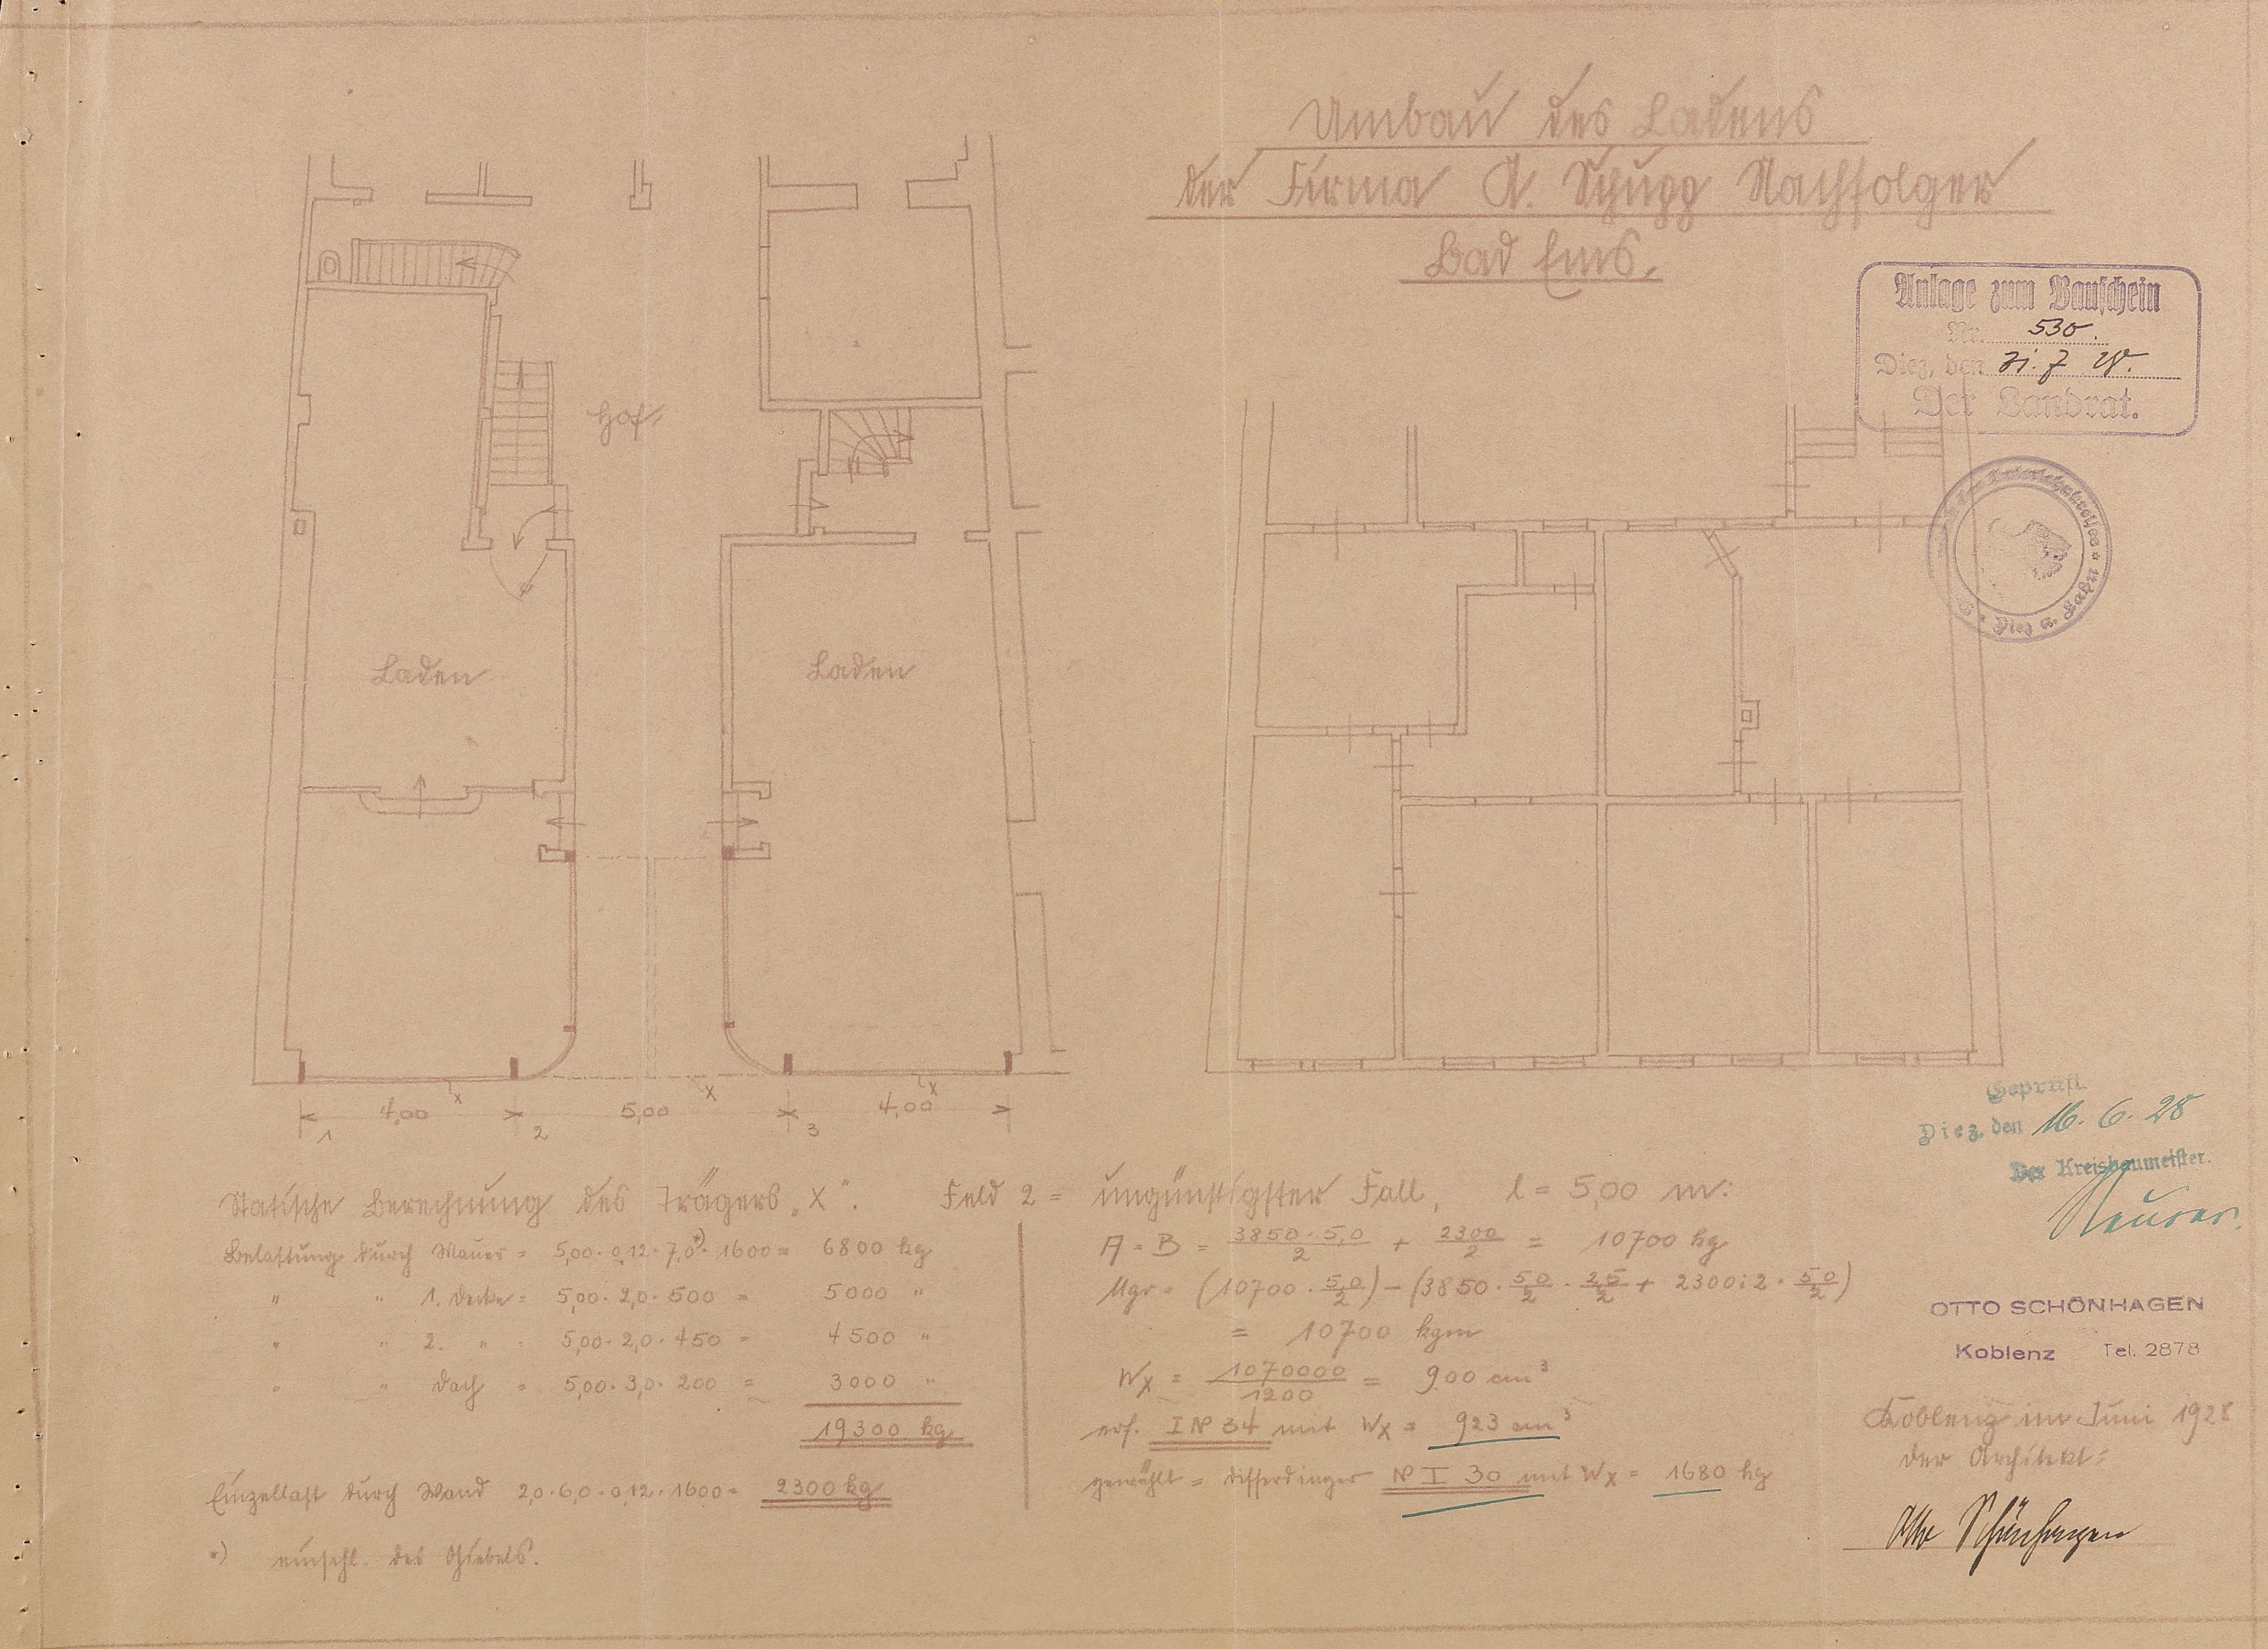 Umbau des Ladens
der Firma A. Schupp Nachfolger
Bad Ems.
Anlage zum Bauschein
Nr. 530.
Diez, den 31. 7. 28.
Der Landrat.
Diez a. Lahn
Hof
Laden
Laden
x
x
x
4,00
5,00
4,00
1
2
3
Geprüft.
Diez, den 16. 6. 28
Der Kreisbaumeister.
Statische Berechnung des Trägers „X“. Feld 2 = ungünstigster Fall, l = 5,00 m:
Belastung durch Mauer = 5,00 · 0,12 · 7,0*) · 1600 = 6800 kg
" " 1. Decke = 5,00 · 2,0 · 500 = 5000 "
" " 2. " = 5,00 · 2,0 · 450 = 4500 "
" " Dach = 5,00 · 3,0 · 200 = 3000 "
19300 kg
Einzellast durch Wand 2,0 · 6,0 · 0,12 · 1600 = 2300 kg
*) einschl. des Giebels.
A = B = 3850 · 5,0 / 2 + 2300 / 2 = 10700 kg
Mgr = (10700 · 5,0/2) – (3850 · 5,0/2 · 2,5/2 + 2300 : 2 · 5,0/2)
= 10700 kgm
Wx = 1070000 / 1200 = 900 cm³
erf. I № 34 mit Wx = 923 cm³
gewählt = Differdinger № I 30 mit Wx = 1680 kg
OTTO SCHÖNHAGEN
Koblenz Tel. 2878
Koblenz im Juni 1928
Der Architekt:
Otto Schönhagen